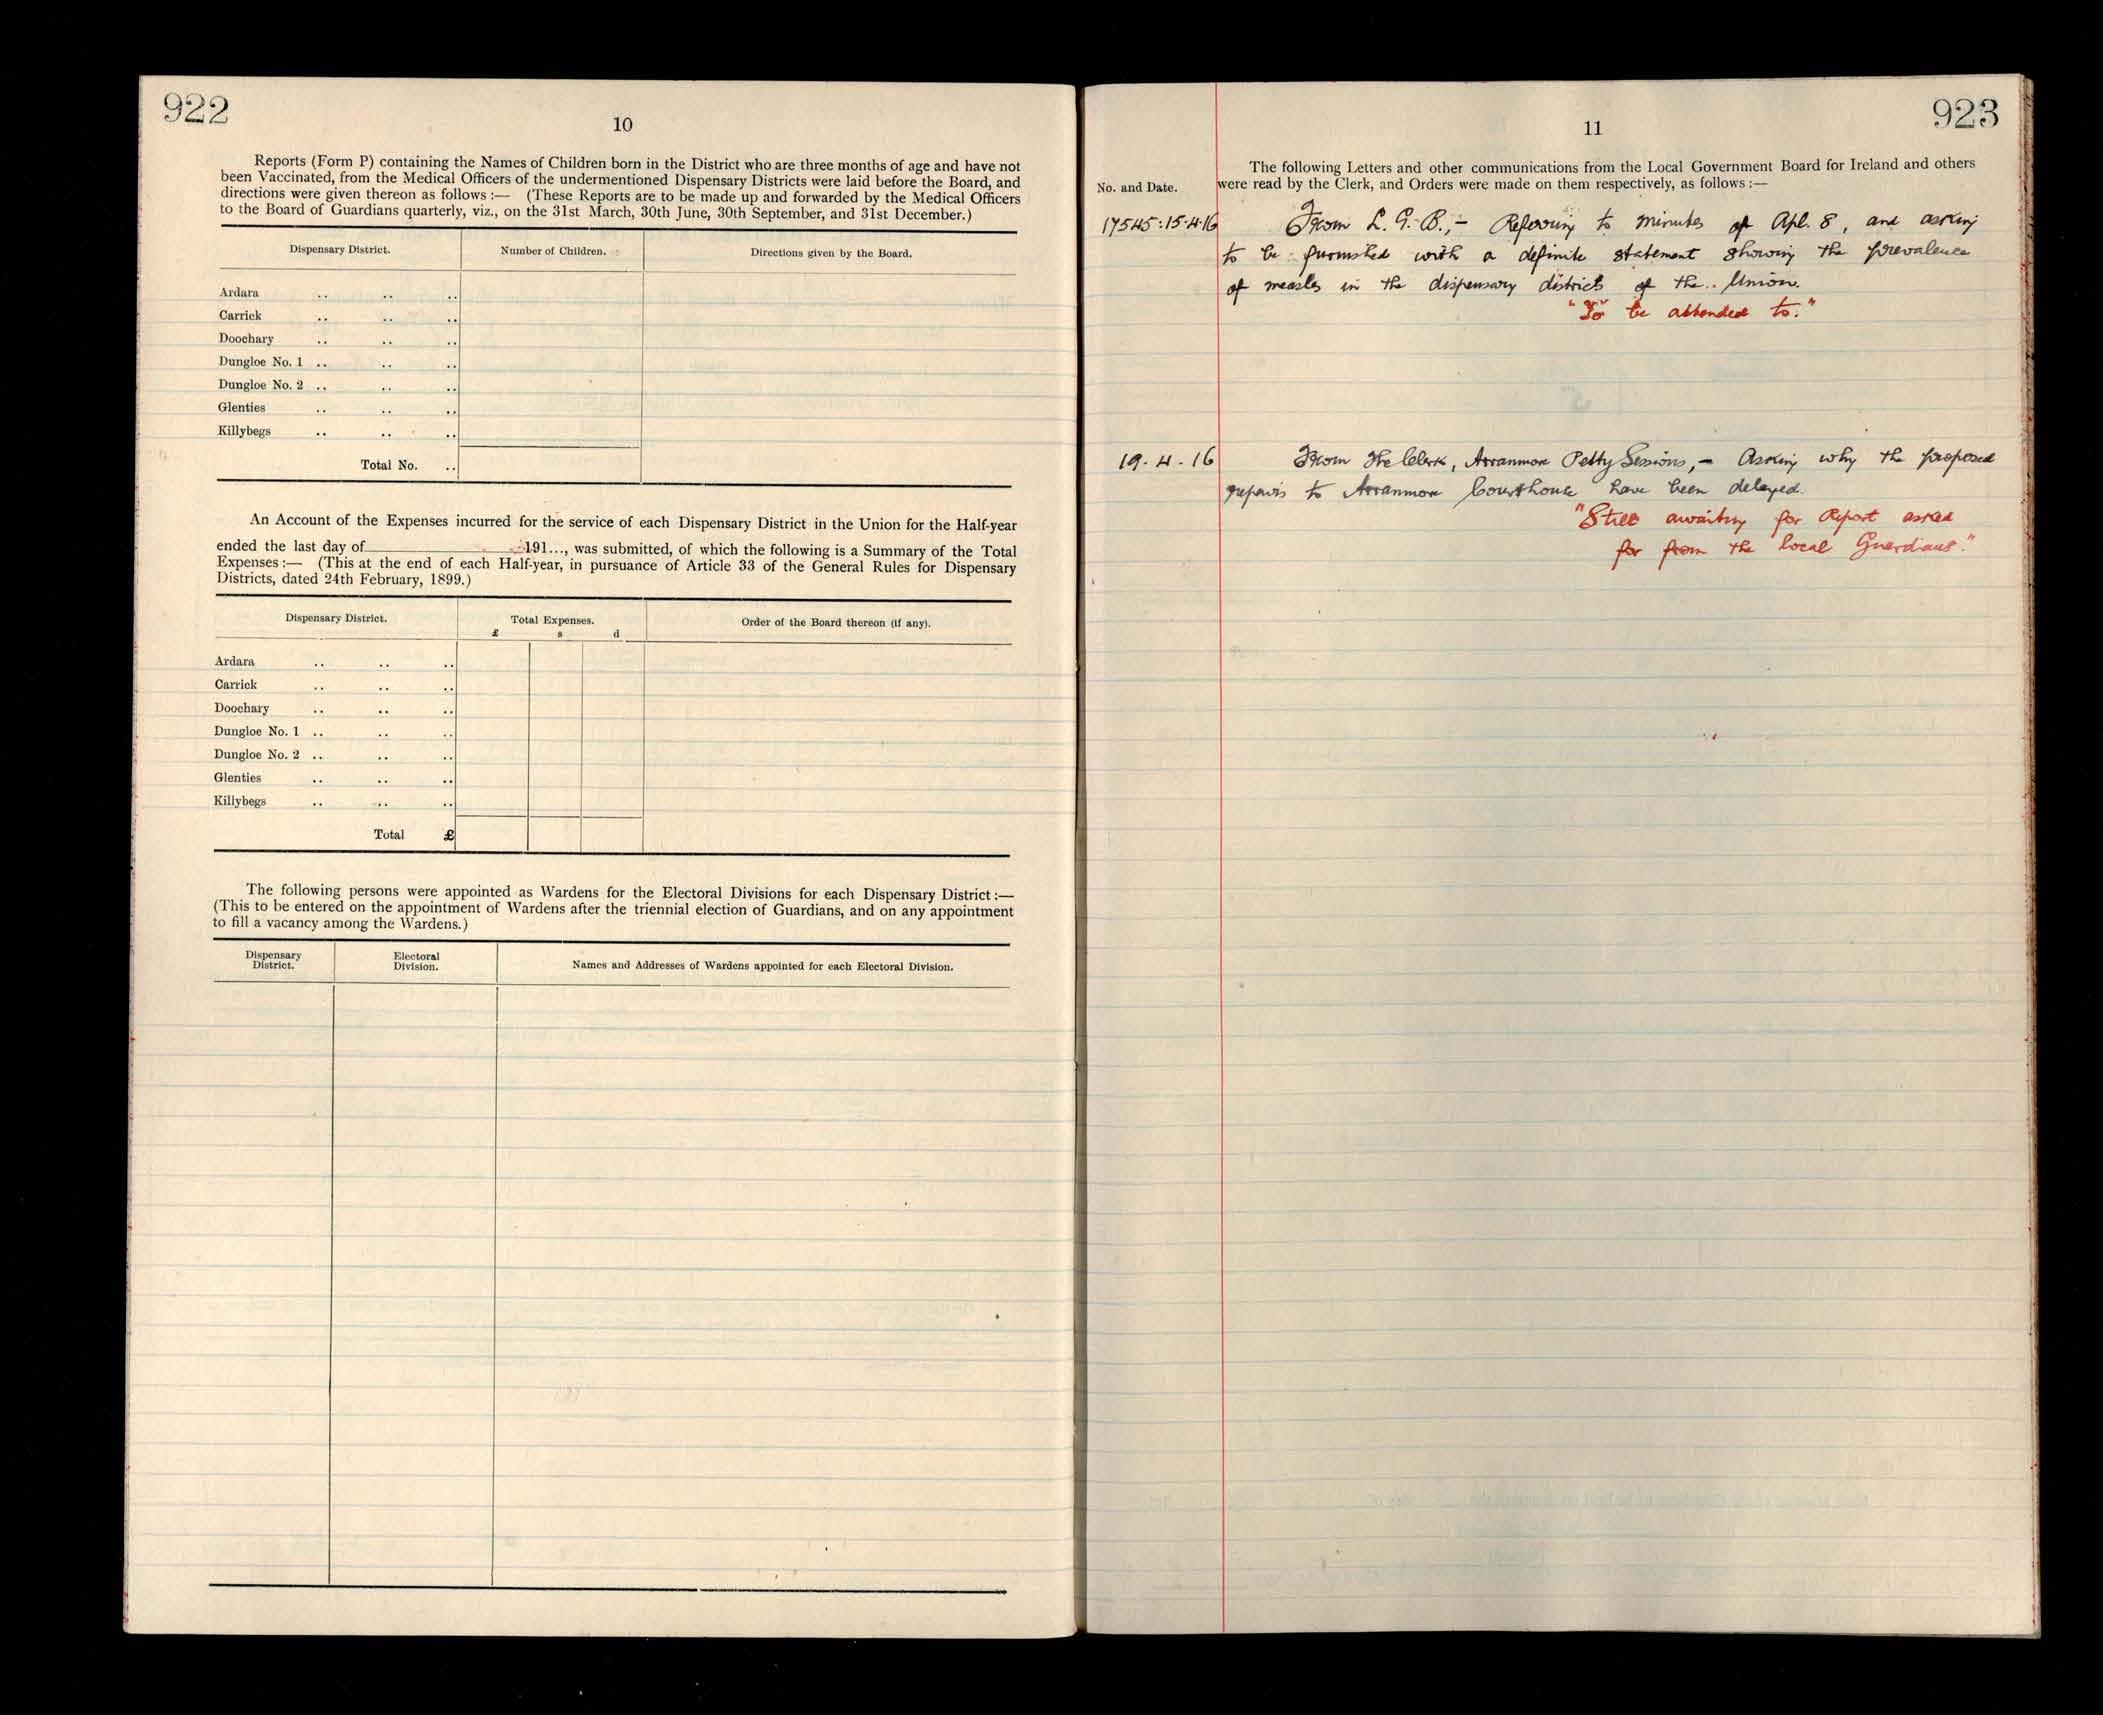 922
10
Reports (Form P) containing the Names of Children born in the District who are three months of age and have not
been Vaccinated, from the Medical Officers of the undermentioned Dispensary Districts were laid before the Board, and
directions were given thereon as follows :— (These Reports are to be made up and forwarded by the Medical Officers
to the Board of Guardians quarterly, viz., on the 31st March, 30th June, 30th September, and 31st December.)
Dispensary District. Number of Children. Directions given by the Board.
Ardara .. .. ..
Carrick .. .. ..
Doochary .. .. ..
Dungloe No. 1 .. .. ..
Dungloe No. 2 .. .. ..
Glenties .. .. ..
Killybegs .. .. ..
Total No. ..
An Account of the Expenses incurred for the service of each Dispensary District in the Union for the Half-year
ended the last day of 191..., was submitted, of which the following is a Summary of the Total
Expenses :— (This at the end of each Half-year, in pursuance of Article 33 of the General Rules for Dispensary
Districts, dated 24th February, 1899.)
Dispensary District. Total Expenses. Order of the Board thereon (if any).
£ s d
Ardara .. .. ..
Carrick .. .. ..
Doochary .. .. ..
Dungloe No. 1 .. .. ..
Dungloe No. 2 .. .. ..
Glenties .. .. ..
Killybegs .. .. ..
Total £
The following persons were appointed as Wardens for the Electoral Divisions for each Dispensary District :—
(This to be entered on the appointment of Wardens after the triennial election of Guardians, and on any appointment
to fill a vacancy among the Wardens.)
Dispensary District. Electoral Division. Names and Addresses of Wardens appointed for each Electoral Division.
923
11
The following Letters and other communications from the Local Government Board for Ireland and others
No. and Date. were read by the Clerk, and Orders were made on them respectively, as follows :—
17545:15·4·16 From L. G. B.,– Referring to minutes of Apl. 8, and asking
to be furnished with a definite statement showing the prevalence
of measles in the dispensary districts of the Union.
"To be attended to."
19·4·16 From The Clerk, Arranmore Petty Sessions,– Asking why the proposed
repairs to Arranmore Courthouse have been delayed.
"Still awaiting for Report asked
for from the local Guardians."